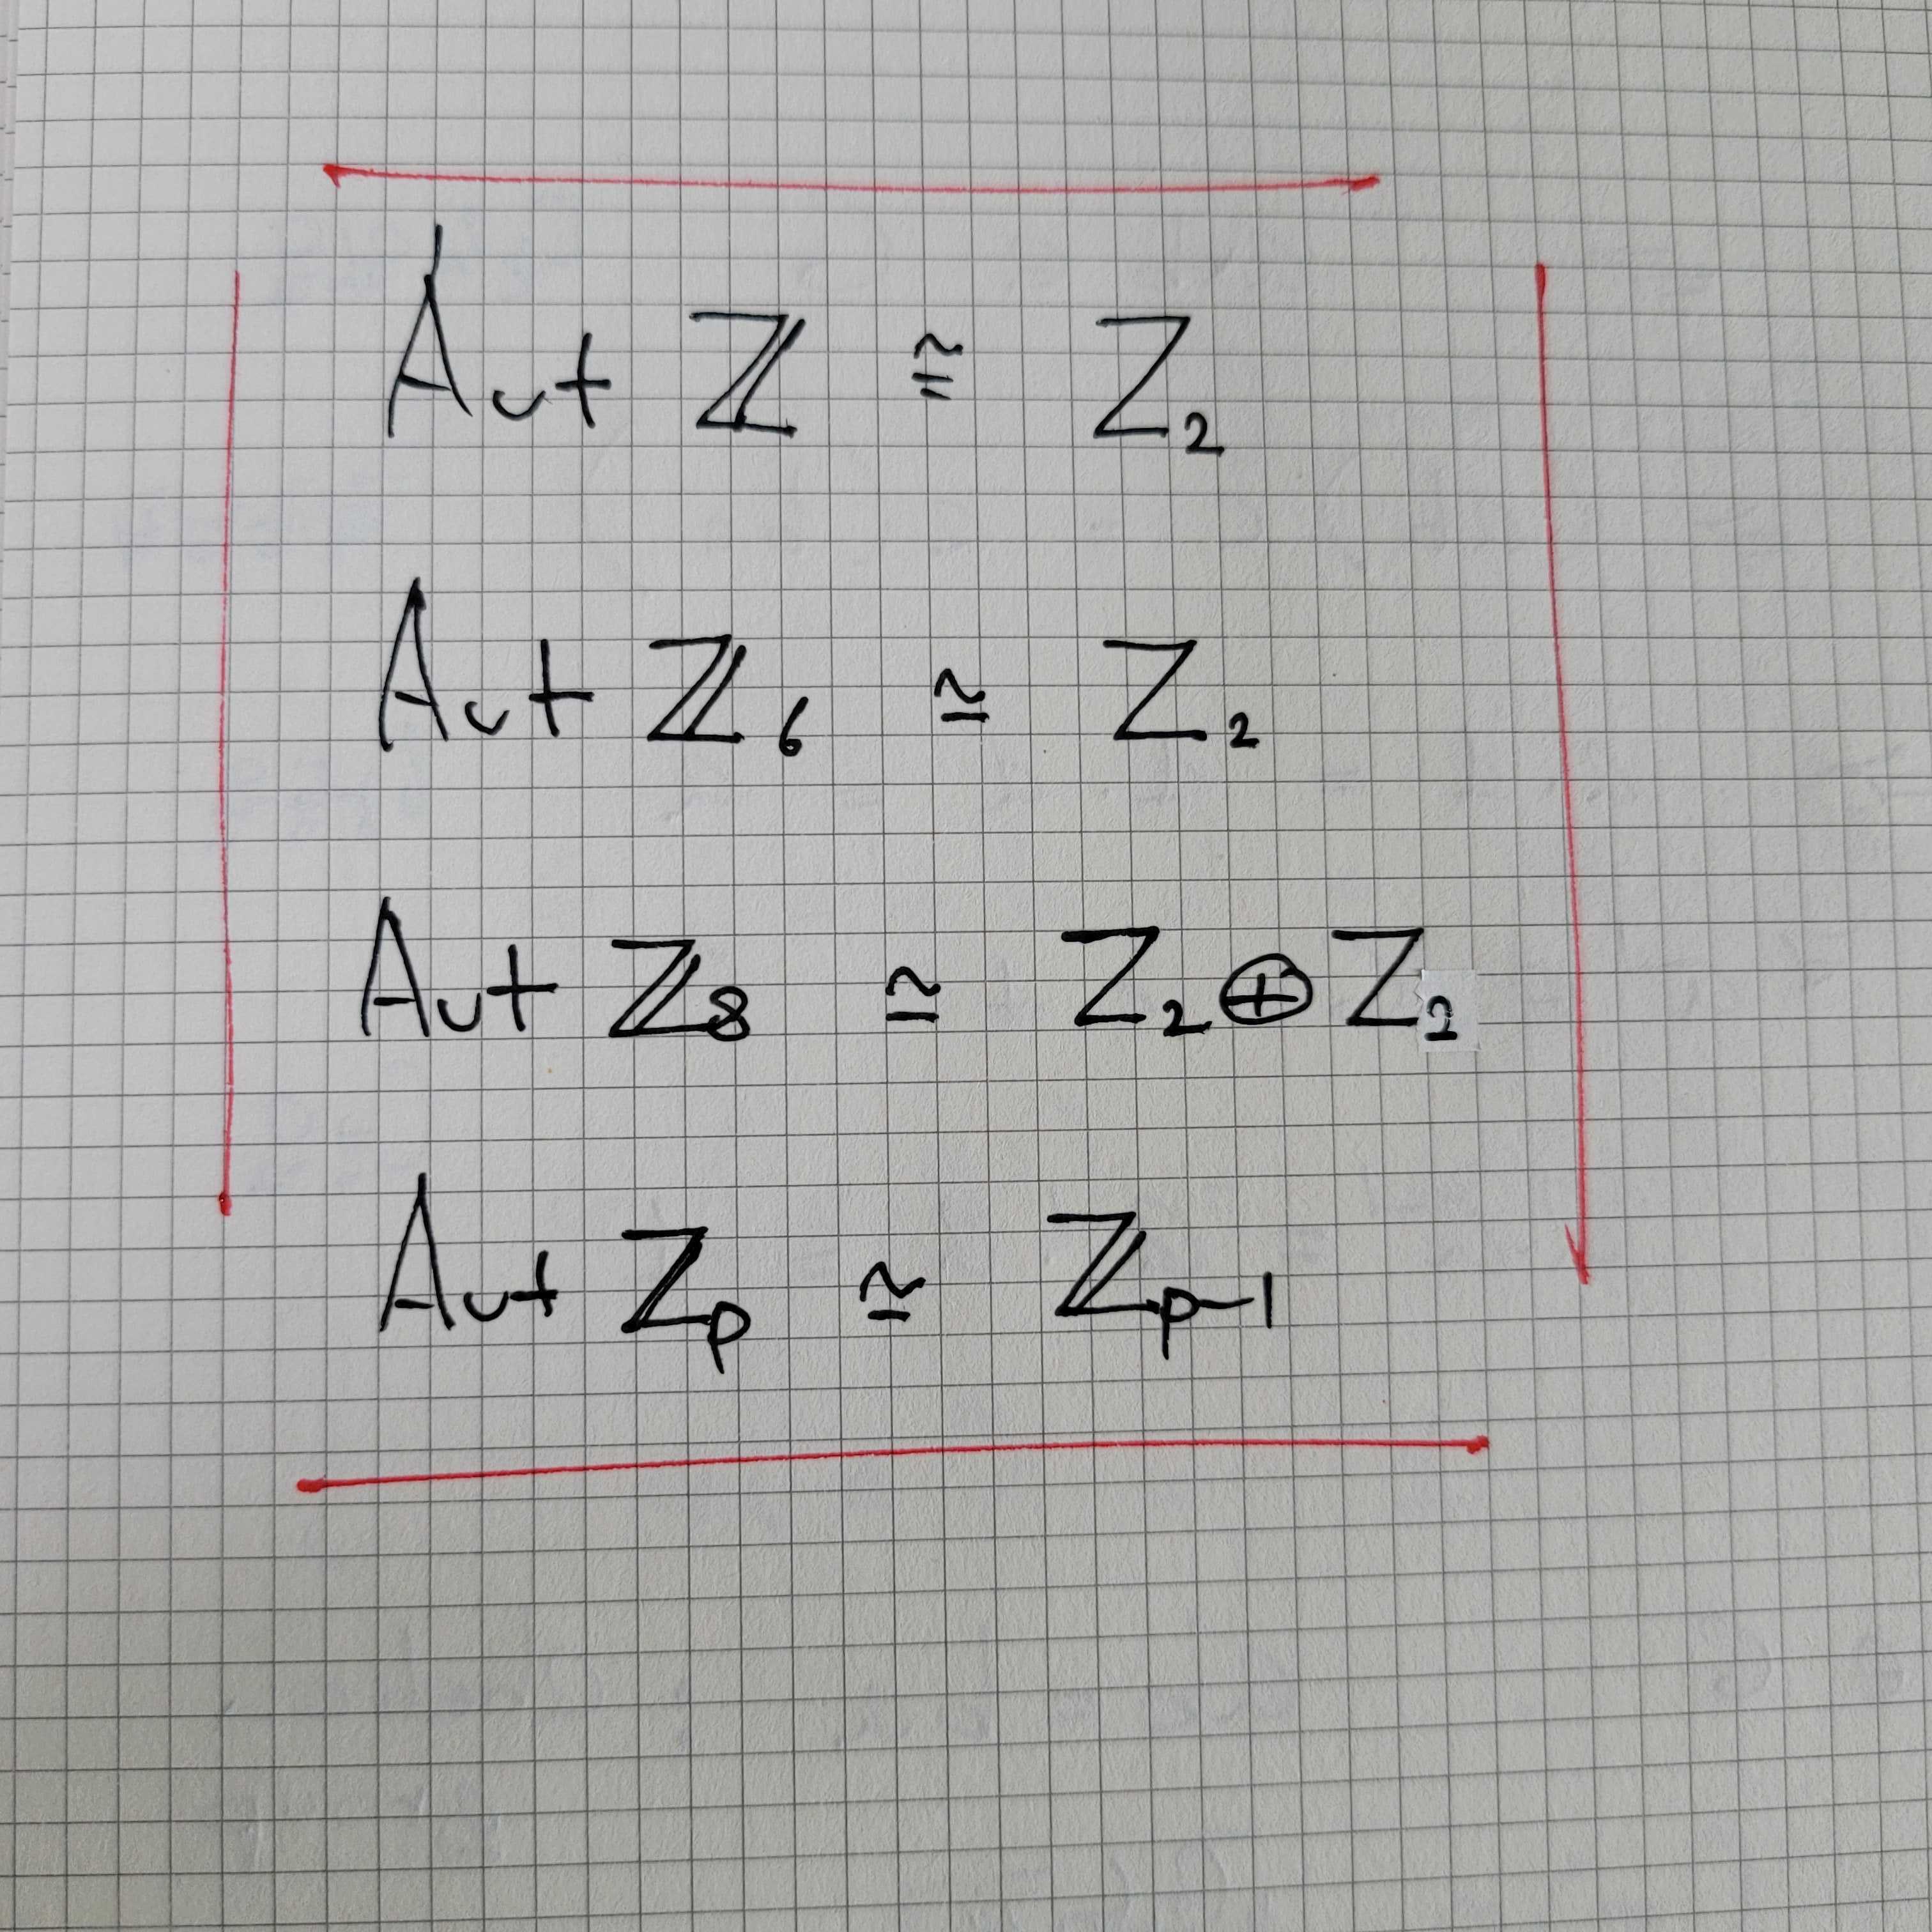 Aut ℤ ≅ Z₂
Aut ℤ₆ ≅ Z₂
Aut ℤ₈ ≅ Z₂ ⊕ Z₂
Aut ℤₚ ≅ ℤₚ₋₁